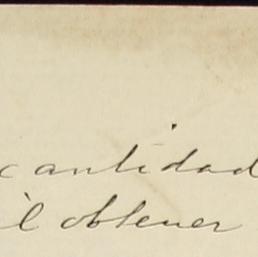 cantidad
il obtener